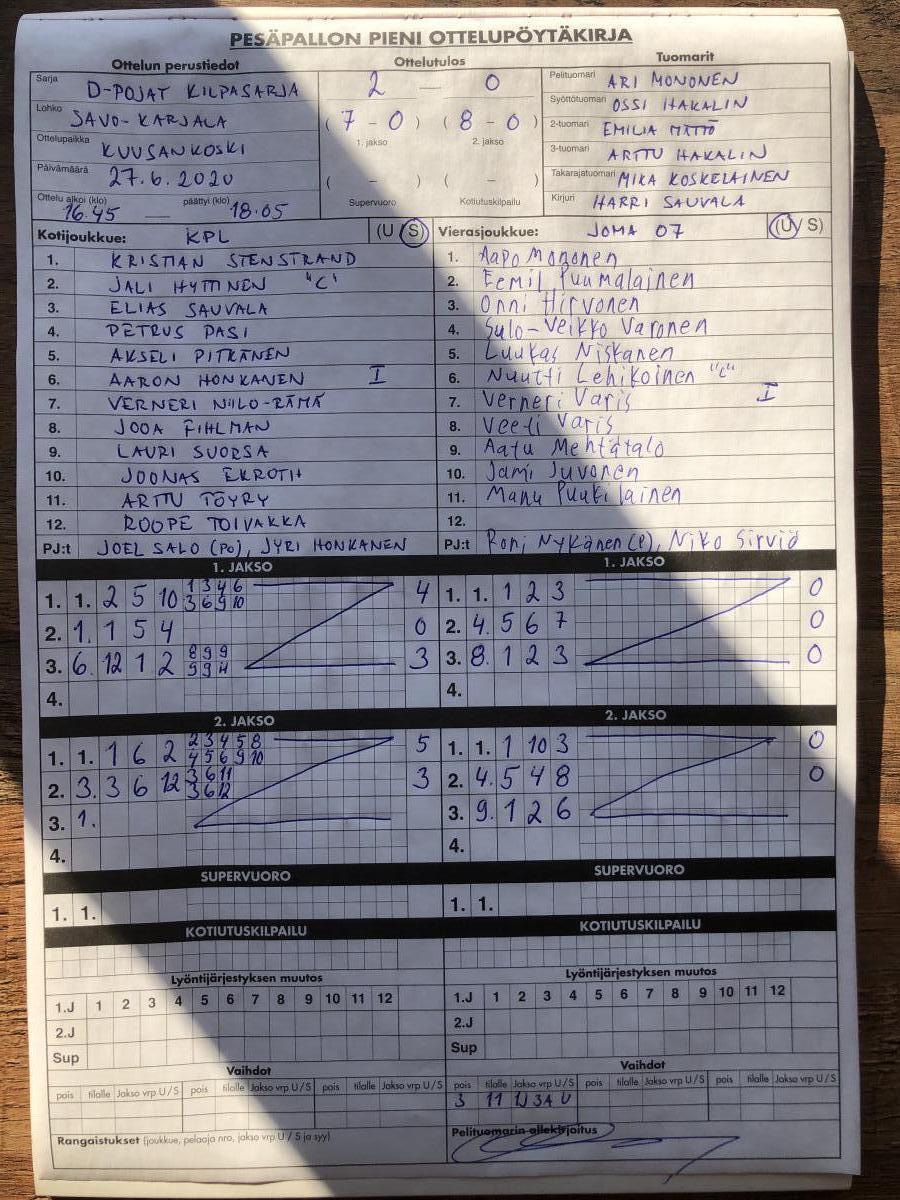 PESÄPALLON PIENI OTTELUPÖYTÄKIRJA
Ottelun perustiedot
Sarja D-POJAT KILPASARJA
Lohko SAVO-KARJALA
Ottelupaikka KUUSANKOSKI
Päivämäärä 27.6.2020
Ottelu alkoi (klo) 16.45 — päättyi (klo) 18.05
Ottelutulos
2 — 0
( 7 - 0 ) ( 8 - 0 )
1. jakso 2. jakso
( - ) ( - )
Supervuoro Kotiutuskilpailu
Tuomarit
Pelituomari ARI MONONEN
Syöttötuomari OSSI HAKALIN
2-tuomari EMILIA MÄTTÖ
3-tuomari ARTTU HAKALIN
Takarajatuomari MIKA KOSKELAINEN
Kirjuri HARRI SAUVALA
Kotijoukkue: KPL (U / S)
1. KRISTIAN STENSTRAND
2. JALI HYTTINEN "C"
3. ELIAS SAUVALA
4. PETRUS PASI
5. AKSELI PITKÄNEN
6. AARON HONKANEN I
7. VERNERI NIILO-RÄMÄ
8. JOOA FIHLMAN
9. LAURI SUORSA
10. JOONAS EKROTH
11. ARTTU TÖYRY
12. ROOPE TOIVAKKA
PJ:t JOEL SALO (PO), JYRI HONKANEN
Vierasjoukkue: JOMA 07 (U / S)
1. Aapo Mononen
2. Eemil Puumalainen
3. Onni Hirvonen
4. Sulo-Veikko Varonen
5. Luukas Niskanen
6. Nuutti Lehikoinen "C"
7. Verneri Varis I
8. Veeti Varis
9. Aatu Mehtätalo
10. Jami Juvonen
11. Manu Puukilainen
12.
PJ:t Roni Nykänen (P), Niko Sirviö
1. JAKSO
1. 1. 2 5 10 1 3 4 6 4
3 6 9 10
2. 1. 1 5 4 0
3. 6. 12 1 2 8 9 9 3
9 9 11
4.
1. JAKSO
1. 1. 1 2 3 0
2. 4. 5 6 7 0
3. 8. 1 2 3 0
4.
2. JAKSO
1. 1. 1 6 2 2 3 4 5 8 5
4 5 6 9 10
2. 3. 3 6 12 3 6 11 3
3 6 12
3. 1.
4.
2. JAKSO
1. 1. 1 10 3 0
2. 4. 5 4 8 0
3. 9. 1 2 6
4.
SUPERVUORO
1. 1.
SUPERVUORO
1. 1.
KOTIUTUSKILPAILU
KOTIUTUSKILPAILU
Lyöntijärjestyksen muutos
1.J 1 2 3 4 5 6 7 8 9 10 11 12
2.J
Sup
Lyöntijärjestyksen muutos
1.J 1 2 3 4 5 6 7 8 9 10 11 12
2.J
Sup
Vaihdot
pois tilalle Jakso vrp U / S pois tilalle Jakso vrp U / S pois tilalle Jakso vrp U / S
Rangaistukset (joukkue, pelaaja nro, jakso vrp U / S ja syy)
Vaihdot
pois tilalle Jakso vrp U / S pois tilalle Jakso vrp U / S pois tilalle Jakso vrp U / S
3 11 1J 3A U
Pelituomarin allekirjoitus